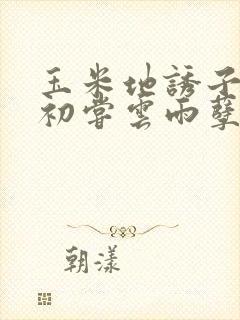 玉米地誘子
初嘗雲雨孽
朝漾